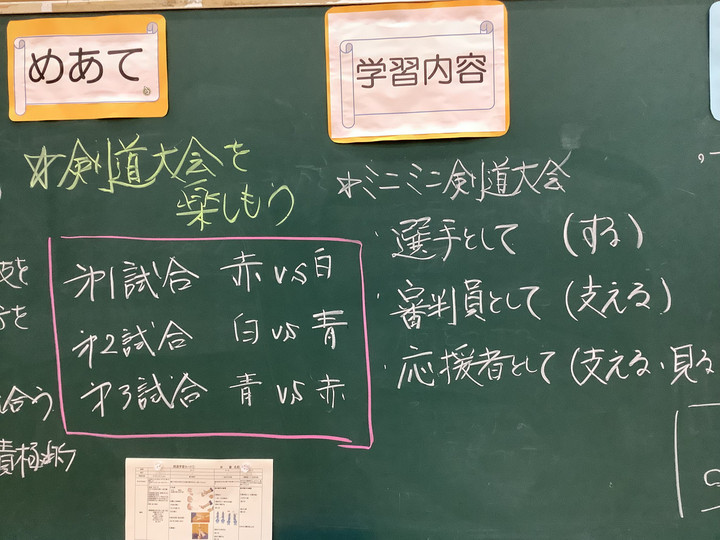 めあて
☆剣道大会を
楽しもう
第1試合 赤 vs 白
第2試合 白 vs 青
第3試合 青 vs 赤
学習内容
☆ミニミニ剣道大会
・選手として (する)
・審判員として (支える)
・応援者として (支える・見る
合う
積極的